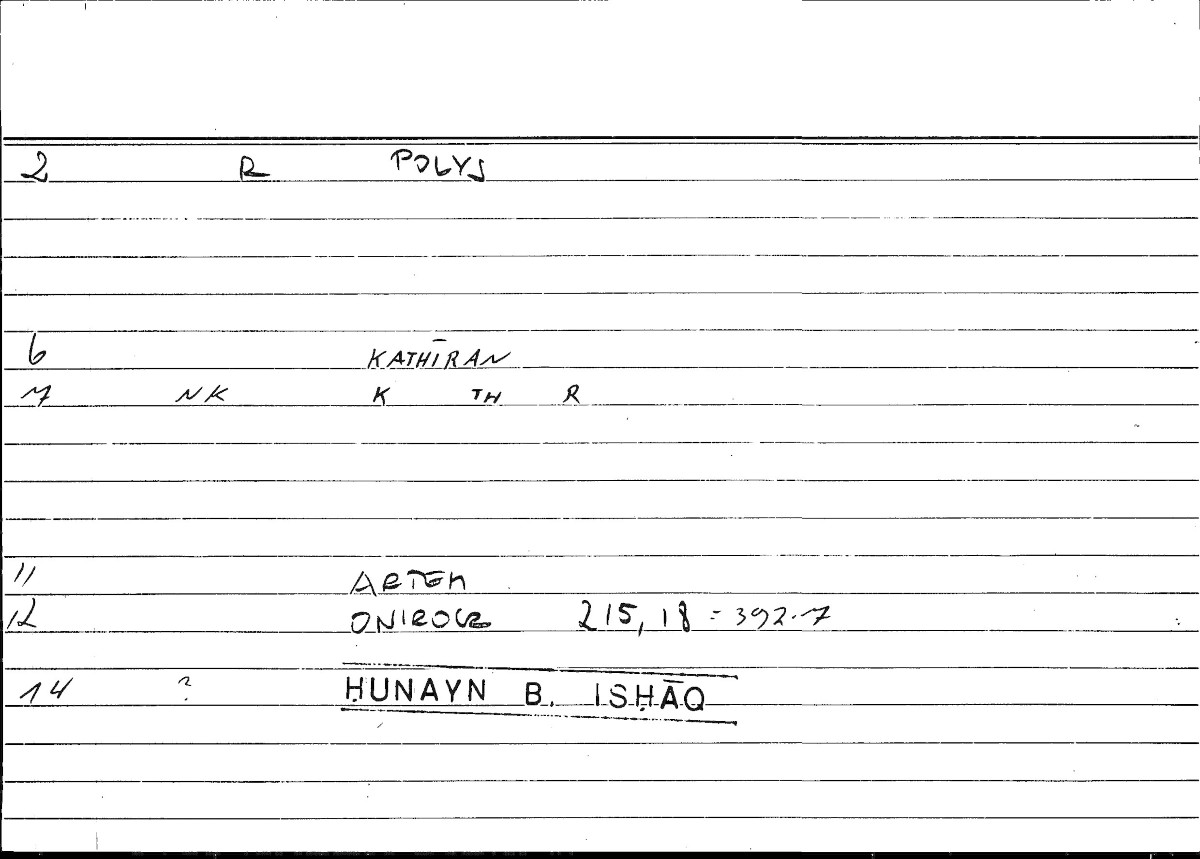 2 R POLYS
6 KATHĪRAN
7 NK K TH R
11 ARTEM
12 ONIROCR 215, 18 = 392.7
14 ? ḤUNAYN B. ISḤĀQ